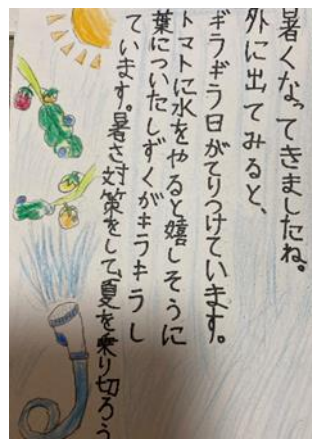 暑くなってきましたね。
外に出てみると、
ギラギラ日がてりつけています。
トマトに水をやると嬉しそうに
葉についたしずくがキラキラし
ています。暑さ対策をして、夏を乗り切ろう